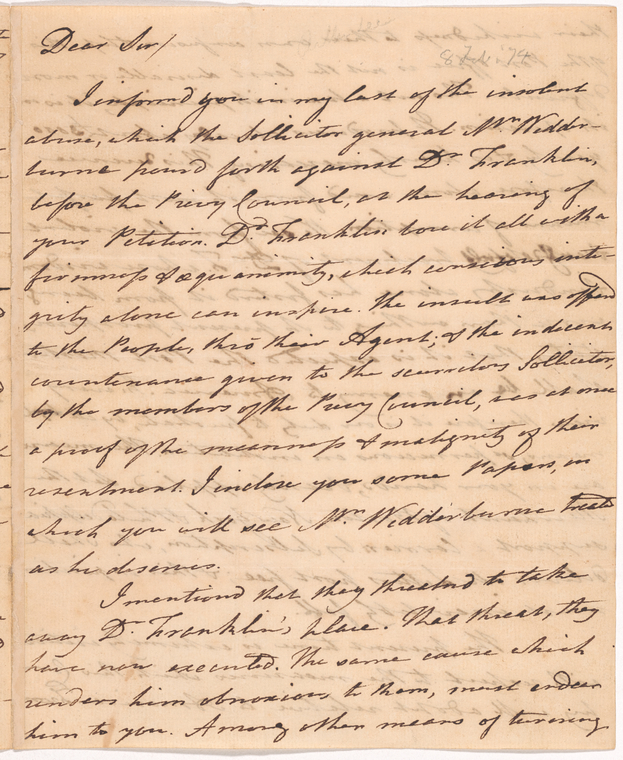 Dear Sir/
8 Feb '74
I informd you in my last of the insolent
abuse, which the Sollicitor general Mr. Wedder-
burne pourd forth against Dr. Franklin,
before the Privy Council, at the hearing of
your Petition. Dr. Franklin bore it all with a
firmness & æquanimity, which conscious inte-
grity alone can inspire. The insult was offerd
to the People, thro their Agent; & the indecent
countenance given to the scurrilous Sollicitor,
by the members of the Privy Council, was at once
a proof of the meanness & malignity of their
resentment. I inclose you some Papers, in
which you will see Mr. Wedderburne treated
as he deserves.
I mentiond that they threatend to take
away Dr. Franklin's place. That threat, they
have now executed. The same cause which
renders him obnoxious to them, must endear
him to you. Among other means of turning